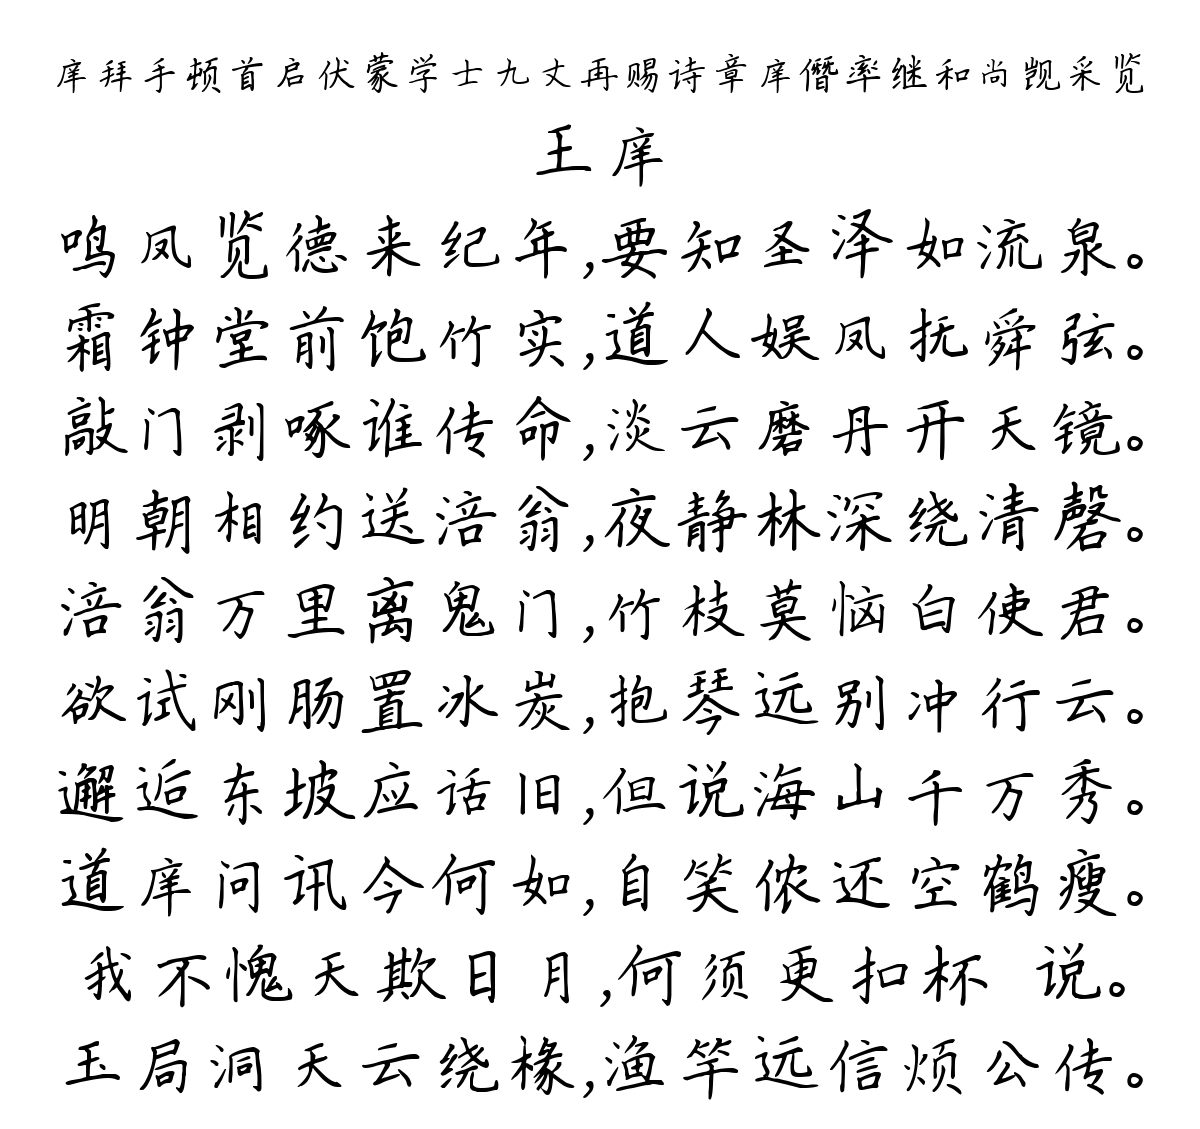 庠拜手顿首启伏蒙学士九丈再赐诗章庠僭率继和尚觊采览
王庠
鸣凤览德来纪年,要知圣泽如流泉。
霜钟堂前饱竹实,道人娱凤抚舜弦。
敲门剥啄谁传命,淡云磨丹开天镜。
明朝相约送涪翁,夜静林深绕清磬。
涪翁万里离鬼门,竹枝莫恼白使君。
欲试刚肠置冰炭,抱琴远别冲行云。
邂逅东坡应话旧,但说海山千万秀。
道庠问讯今何如,自笑侬还空鹤瘦。
我不愧天欺日月,何须更扣杯 说。
玉局洞天云绕椽,渔竿远信烦公传。